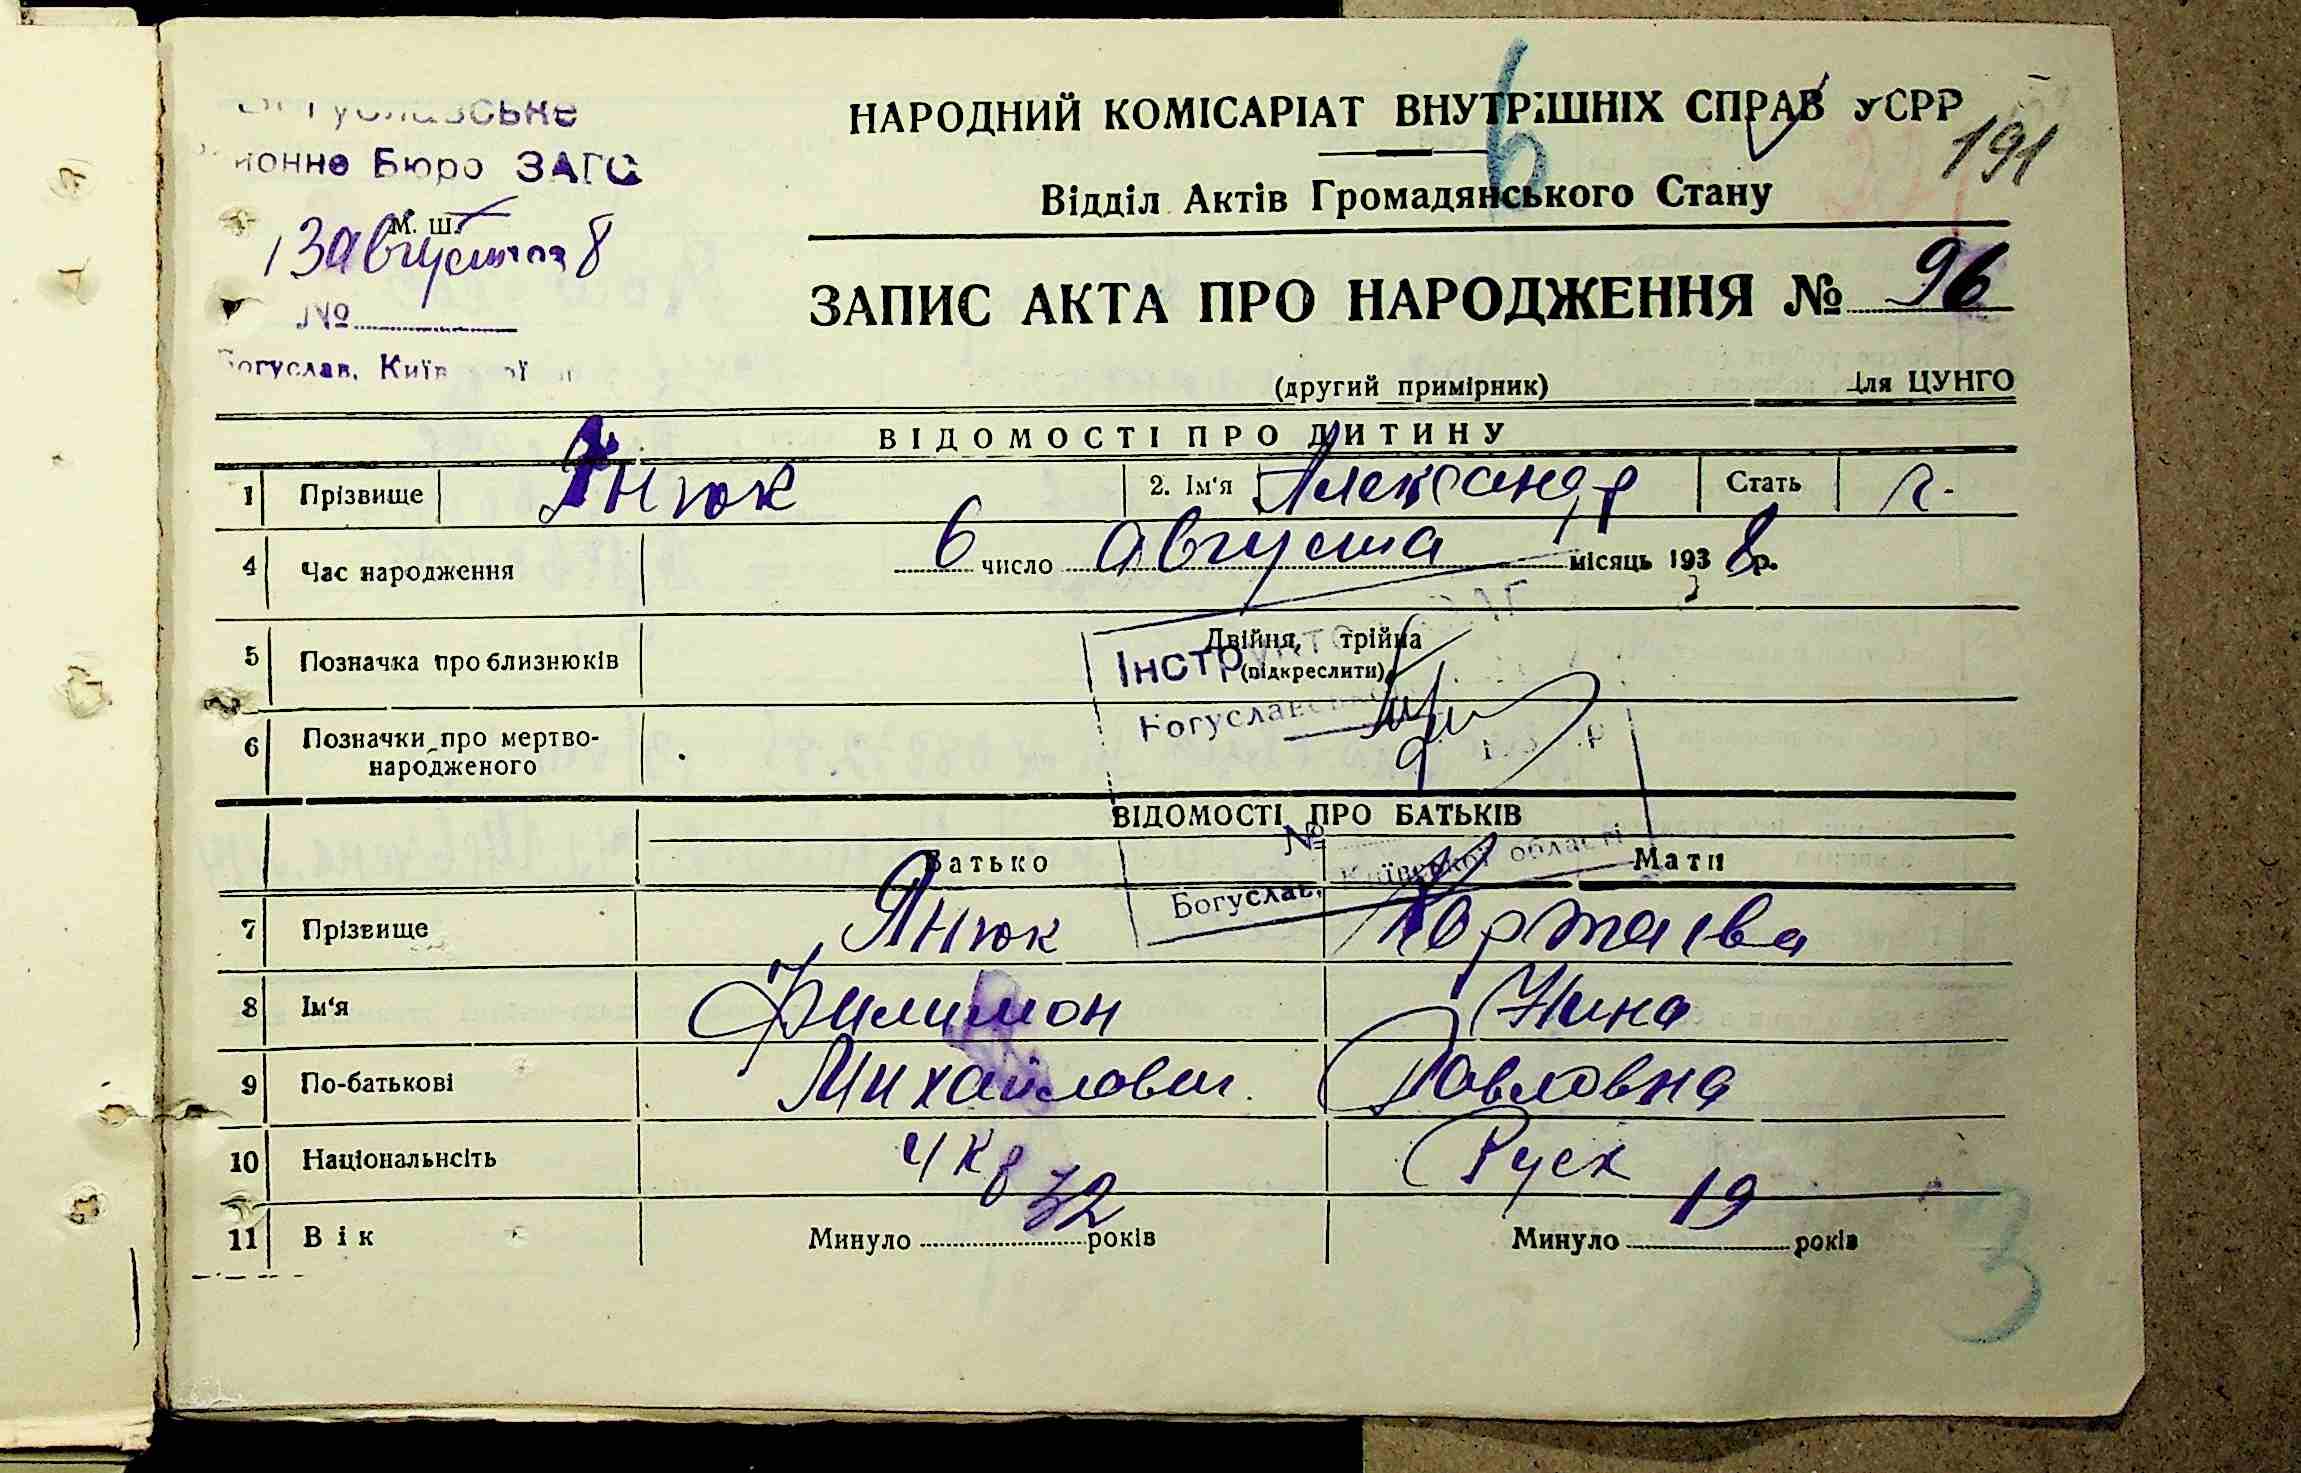 Бюро ЗАГС
М. Ш.
13 августа 8
№
Богуслав, Київ
НАРОДНИЙ КОМІСАРІАТ ВНУТРІШНІХ СПРАВ УСРР
6
191
Відділ Актів Громадянського Стану
ЗАПИС АКТА ПРО НАРОДЖЕННЯ № 96
(другий примірник) Для ЦУНГО
ВІДОМОСТІ ПРО ДИТИНУ
1 Прізвище Янюк 2. Ім'я Александр Стать
4 Час народження 6 число августа місяць 1938 р.
5 Позначка про близнюків Двійня, трійна
(підкреслити)
6 Позначки про мертво-
народженого
Богуслав, Київської області
№
ВІДОМОСТІ ПРО БАТЬКІВ
Батько Мати
7 Прізвище Янюк
8 Ім'я Филимон Нина
9 По-батькові Михайлович Павловна
10 Національнсіть Укр Руск
11 Вік Минуло 32 років Минуло 19 років
3